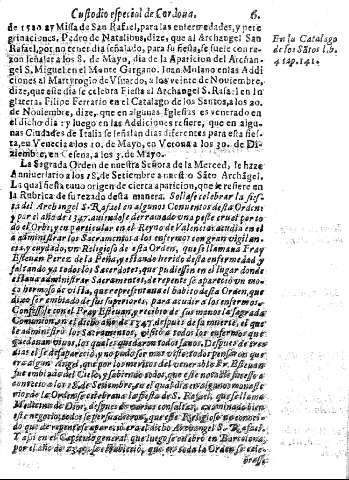 Custodio especial de Cordoua. 6.
de 1520. ay Missa de San Rafael, para las enfermedades, y pere
grinaciones. Pedro de Natalibus, dize, que al Archangel San
Rafael, por no tener dia señalado, para su fiesta, se suele con ra-
zon señalar a 8. de Mayo, dia de la Aparicion del Archan-
gel S. Miguel en el Monte Gargano. Juan Molano en las Addi
ciones al Martyrogio de Vsuardo, a los veinte de Nouiembre,
dize, que esse dia se celebra Fiesta al Archangel S. Rafael en In
glaterra. Filipe Ferrario en el Catalago de los Santos, a los 20.
de Nouiembre, dize, que en algunas Iglesias es venerado en
el dicho dia: y luego en las Addiciones refiere, que en algu-
nas Ciudades de Italia se señalan dias diferentes para esta fies-
ta, en Venecia a los 10. de Mayo, en Verona a los 30. de Di-
ziembre, en Cesena, a los 3. de Mayo.
En la Catalago
de los Sãtos l. b.
4 cap. 141.
La Sagrada Orden de nuestra Señora de la Merced, le haze
Anniuersario a los 18. de Setiembre a nuestro Sãto Archãgel.
La qual fiesta tuuo origen de cierta aparicion, que se refiere en
la Rubrica de su rezado desta manera. Soliase celebrar la fies-
ta del Archangel S. Rafael en algunos Conuentos desta Orden:
y por el año de 1347. auiendose derramado vna peste cruel por to
do el Orbe, y en particular en el Reyno de Valencia, acudia en el
a administrar los Sacramentos a los enfermos con gran vigilan-
cia, y cuydado, vn Religioso de esta Orden, que se llamaua Fray
Esteuan Perez de la Peña, y estando herido desta enfermedad, y
faltando ya todos los Sacerdotes, que pudiessen en el lugar donde
estaua administrar Sacramentos, de repente se aparecio vn mo-
ço hermoso de vista, que representaua el habito desta Orden, que
dixo ser embiado de sus superiores, para acudir a los enfermos.
Confessòse con el Fray Esteuan, y recibio de sus manos la sagrada
Comunion, en el dicho año de 1347. despues de la muerte, el que
le administrò los Sacramentos, visitò a todos los enfermos que
quedauan viuos, los quales quedaron todos sanos. Despues de tres
dias el se desapareciò, y no pudo ser mas visto: todos pensaron que
era algun Angel, que por los meritos del venerable Fr. Esteuan
fue embiado del Cielo, y sabiendo todos, que este notable suceso a
contecio a los 18. de Setiembre, en el qual dia en algunos monaste
rios de la Orden se celebraua la fiesta de S. Rafael, que se llama
Medicina de Dios, despues de varias consultas, examinado bien
este negocio, todos se persuadieron, que este Religioso no conoci-
do que de repente se aparecio era el dicho Archangel S. Rafael.
Y assi en el Capitulo general, que luego se celebrò en Barcelona,
por el año de 1349. se establecio, que en toda la Orden se cele-
brasse